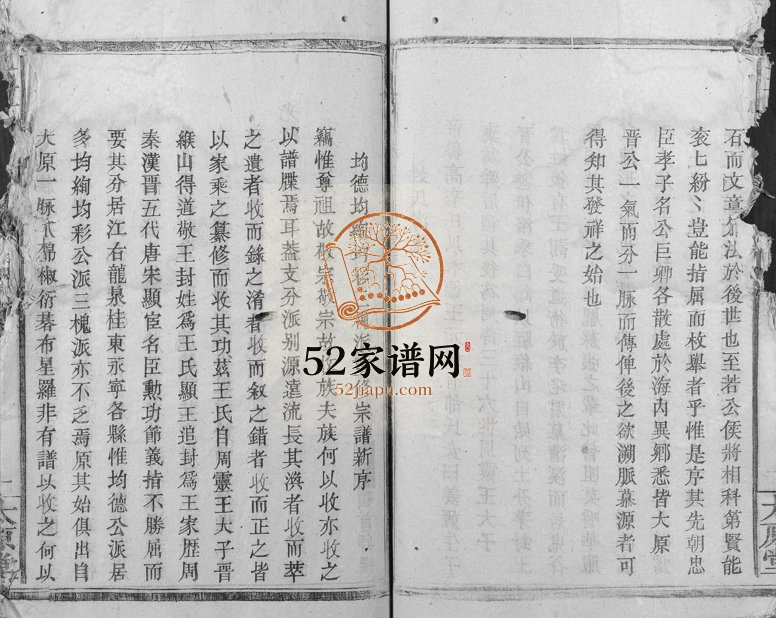 石而文章
法於後世也至若公侯將相科第賢能
衮七紛〻豈能指屈而枚舉者乎惟是序其先朝忠
臣孝子名公巨卿各散處於海內異鄉悉皆大原
晉公一氣而分一脉而傳俾後之欲溯脈慕源者可
得知其發祥之始也
均德均絢均
宗譜新序
竊惟尊祖故敬宗敬宗故收族夫族何以收亦收之
以譜牒焉耳蓋支分派别源遠流長其渙者收而萃
之遺者收而錄之淆者收而叙之錯者收而正之皆
以家乘之纂修而收其功茲王氏自周靈王太子晉
緱山得道敬王封姓爲王氏顯王追封爲王家歷周
秦漢晉五代唐宋顯宦名臣勲功節義指不勝屈而
要其分居江右龍泉桂東永寧各縣惟均德公派居
多均絢均彩公派三槐派亦不乏焉原其始俱出自
大原一脉瓜綿椒衍碁布星羅非有譜以收之何以
52家谱网
52jiapu.com